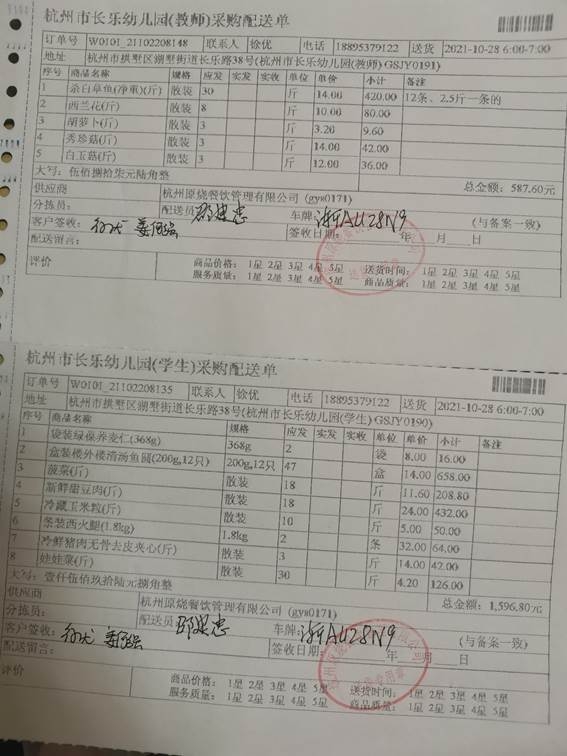 杭州市长乐幼儿园(教师)采购配送单
订单号 W0101_21102208148 联系人 徐优 电话 18895379122 送货 2021-10-28 6:00-7:00
地址 杭州市拱墅区湖墅街道长乐路38号(杭州市长乐幼儿园(教师) GSJY0191)
序号 商品名称 规格 应发 实发 实收 单位 单价 小计 备注
1 杂白草鱼(净重)(斤) 散装 30 斤 14.00 420.00 12条、2.5斤一条的
2 西兰花(斤) 散装 8 斤 10.00 80.00
3 胡萝卜(斤) 散装 3 斤 3.20 9.60
4 秀珍菇(斤) 散装 3 斤 14.00 42.00
5 白玉菇(斤) 散装 3 斤 12.00 36.00
大写: 伍佰捌拾柒元陆角整 总金额: 587.60元
供应商 杭州原烧餐饮管理有限公司 (gys0171)
分拣员: 配送员 邵建忠 车牌: 浙AU28N9 (与备案一致)
客户签收: 签收日期: 年 月 日
配送留言:
评价 商品价格: 1星 2星 3星 4星 5星 送货时间: 1星 2星 3星 4星 5星
服务质量: 1星 2星 3星 4星 5星 商品质量: 1星 2星 3星 4星 5星
杭州市长乐幼儿园(学生)采购配送单
订单号 W0101_21102208135 联系人 徐优 电话 18895379122 送货 2021-10-28 6:00-7:00
地址 杭州市拱墅区湖墅街道长乐路38号(杭州市长乐幼儿园(学生) GSJY0190)
序号 商品名称 规格 应发 实发 实收 单位 单价 小计 备注
1 袋装绿保荞麦仁(368g) 368g 2 袋 8.00 16.00
2 盒装楼外楼清汤鱼圆(200g,12只) 200g,12只 47 盒 14.00 658.00
3 菠菜(斤) 散装 18 斤 11.60 208.80
4 新鲜甜豆肉(斤) 散装 18 斤 24.00 432.00
5 冷藏玉米粒(斤) 散装 10 斤 5.00 50.00
6 条装西火腿(1.8kg) 1.8kg 2 条 32.00 64.00
7 冷鲜猪肉无骨去皮夹心(斤) 散装 3 斤 14.00 42.00
8 娃娃菜(斤) 散装 30 斤 4.20 126.00
大写: 壹仟伍佰玖拾陆元捌角整 总金额: 1,596.80元
供应商 杭州原烧餐饮管理有限公司 (gys0171)
分拣员: 配送员 邵建忠 车牌: 浙AU28N9 (与备案一致)
客户签收: 签收日期: 年 月 日
配送留言:
评价 商品价格: 1星 2星 3星 4星 5星 送货时间: 1星 2星 3星 4星 5星
服务质量: 1星 2星 3星 4星 5星 商品质量: 1星 2星 3星 4星 5星